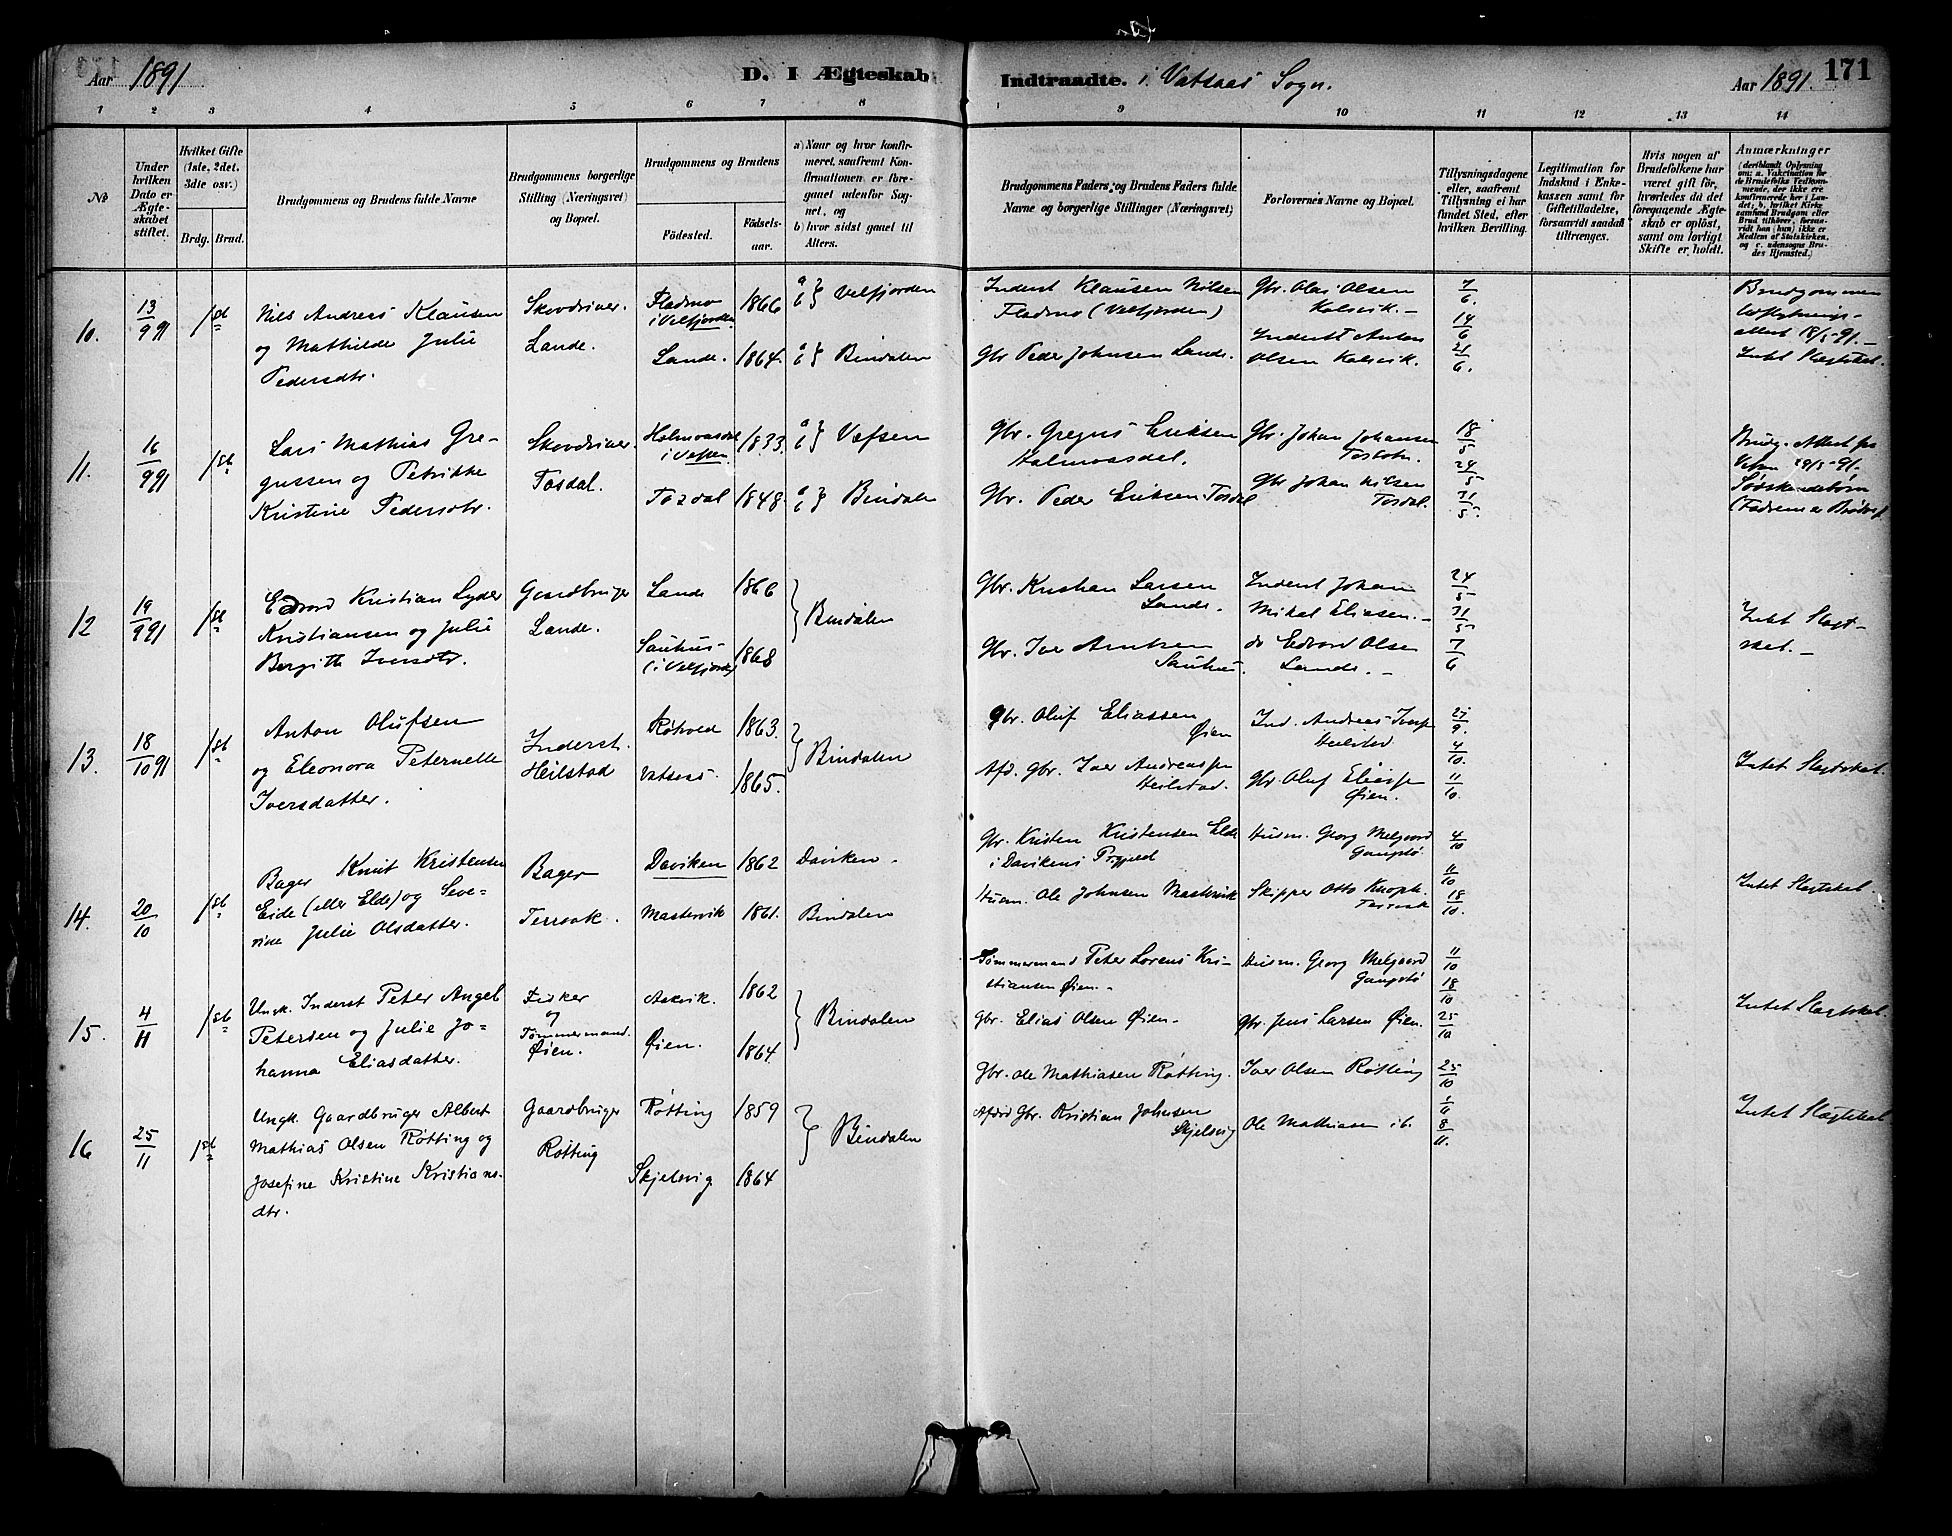 Aar 1891 D. I Ægteskab Indtraadte. i Vatsaas Sogn. Aar 1891. 171
1 2 3 4 5 6 7 8 9 10 11 12 13 14
№
Under hvilken Dato er Ægteskabet stiftet.
Hvilket Gifte (1ste, 2det, 3die osv.)
Brdg. Brud.
Brudgommens og Brudens fulde Navne
Brudgommens borgerlige Stilling (Næringsvei) og Bopæl.
Brudgommens og Brudens
Fødested. Fødselsaar.
a) Naar og hvor konfirmeret, saafremt Konfirmationen er foregaaet udenfor Sognet, og
b) hvor sidst gaaet til Alters.
Brudgommens Faders og Brudens Faders fulde Navne og borgerlige Stillinger (Næringsvei)
Forlovernes Navne og Bopæl.
Tillysningsdagene eller, saafremt Tillysning ei har fundet Sted, efter hvilken Bevilling.
Legitimation for Indskud i Enkekassen samt for Giftetilladelse, forsaavidt saadan tiltrænges.
Hvis nogen af Brudefolkene har været gift før, hvorledes da det foregaaende Ægteskab er opløst, samt om lovligt Skifte er holdt.
Anmærkninger
(deriblandt Oplysning om: a. Vakcination for de Brudefolks Vedkommende, der ikke ere konfirmerede her i Landet; b. hvilket Kirkesamfund Brudgom eller Brud tilhører, forsaavidt han (hun) ikke er Medlem af Statskirken, og c. udensogns Brudes Hjemsted.)
10. 13/9 91 1ste
Nils Andreas Klausen
og Mathilde Julie
Pedersdtr.
Skovdriver.
Lande.
Fladmo
i Velfjorden 1866
Lande. 1864.
a b } Velfjorden
a b } Bindalen
Inderst Klausen Nilsen
Fladmo (Velfjorden)
Gbr Peder Johnsen Lande.
Gbr. Olai Olsen
Kalsvik.
Inderst Anton
Olsen Kalsvik.
7/6. 14/6 21/6.
Brudgommen
Udflytnings-
attest 18/5-91.
Intet Slægtskab.
11. 16/9 91 1ste
Lars Mathias Gre-
gussen og Petrikke
Kristine Pedersdtr.
Skovdriver.
Tosdal.
Holmvasdal
i Vefsen 1833.
Tosdal 1848.
a b } Vefsen
a b } Bindalen
Gbr. Gregus Eriksen
Holmvasdal.
Gbr. Peder Eriksen Tosdal
Gbr. Johan Johansen
Tosbotn.
Gbr Johan Nilsen
Tosdal.
18/5 24/5 31/5.
Brudg. Attest fra
Vefsen 29/5-91.
Sødskendebørn
(Fædrene er Brødre)
12 19/9 91 1ste
Edvard Kristian Lyder
Kristiansen og Julie
Bergith Iversdtr.
Gaardbruger
Lande.
Lande 1866
Sauhus-
(i Velfjord) 1868
} Bindalen
Gbr. Kristian Larsen
Lande.
Gbr. Iver Arntsen
Sauhus.
Inderst Johan
Mikal Eliasen.
do Edvard Olsen
Lande.
24/5 31/5 7/6
Intet Slægt-
skab.
13. 18/10 91 1ste
Anton Olufsen
og Eleonora Peternelle
Iversdatter.
Inderst.
Heilstad
Røkvold 1863.
Vatsaas. 1865.
} Bindalen
Gbr. Oluf Eliassen
Øien
Afd. Gbr. Iver Andreassen
Heilstad.
Ind. Andreas Iversen
Heilstad
Gbr Oluf Eliassen
Øien.
27/9. 4/10. 11/10.
Intet Slægtskab.
14. 20/10 1ste
Bager Knut Kristensen
Eide (eller Elde) og Seve-
rine Julie Olsdatter.
Bager
Terraak.
Daviken 1862
Mastervik 1861.
Daviken.
Bindalen
Gbr. Kristen Kristensen Elde
i Davikens Prgjæld
Husm. Ole Johnsen Mastervik
Husm. Georg Melgaard
Gangstø.
Skipper Otto Knoph
Terraak
4/10 11/10 18/10.
Intet Slægtskab.
15. 4/11 1ste
Ungk. Inderst Peter Angel
Petersen og Julie Jo-
hanna Eliasdatter.
Fisker
og
Tømmermand.
Øien.
Aakvik. 1862
Øien. 1864
} Bindalen
Tømmermand Peter Lorens Kri-
stiansen Øien.
Gbr. Elias Olsen Øien.
Husm. Georg Melgaard
Gangstø
Gbr. Jens Larsen Øien.
11/10 18/10 25/10
Intet Slægtskab.
16 25/11 1ste
Ungk. Gaardbruger Albert
Mathias Olsen Røtting og
Josefine Kristine Kristians-
dtr.
Gaardbruger
Røtting
Røtting 1859
Skjelsvig 1864
} Bindalen
Gbr. Ole Mathiasen Røtting.
Afdød Gbr. Kristian Johnsen
Skjelsvig
Iver Olsen Røtting
Ole Mathiasen ib.
25/10 1/11 8/11.
Intet Slægtskab